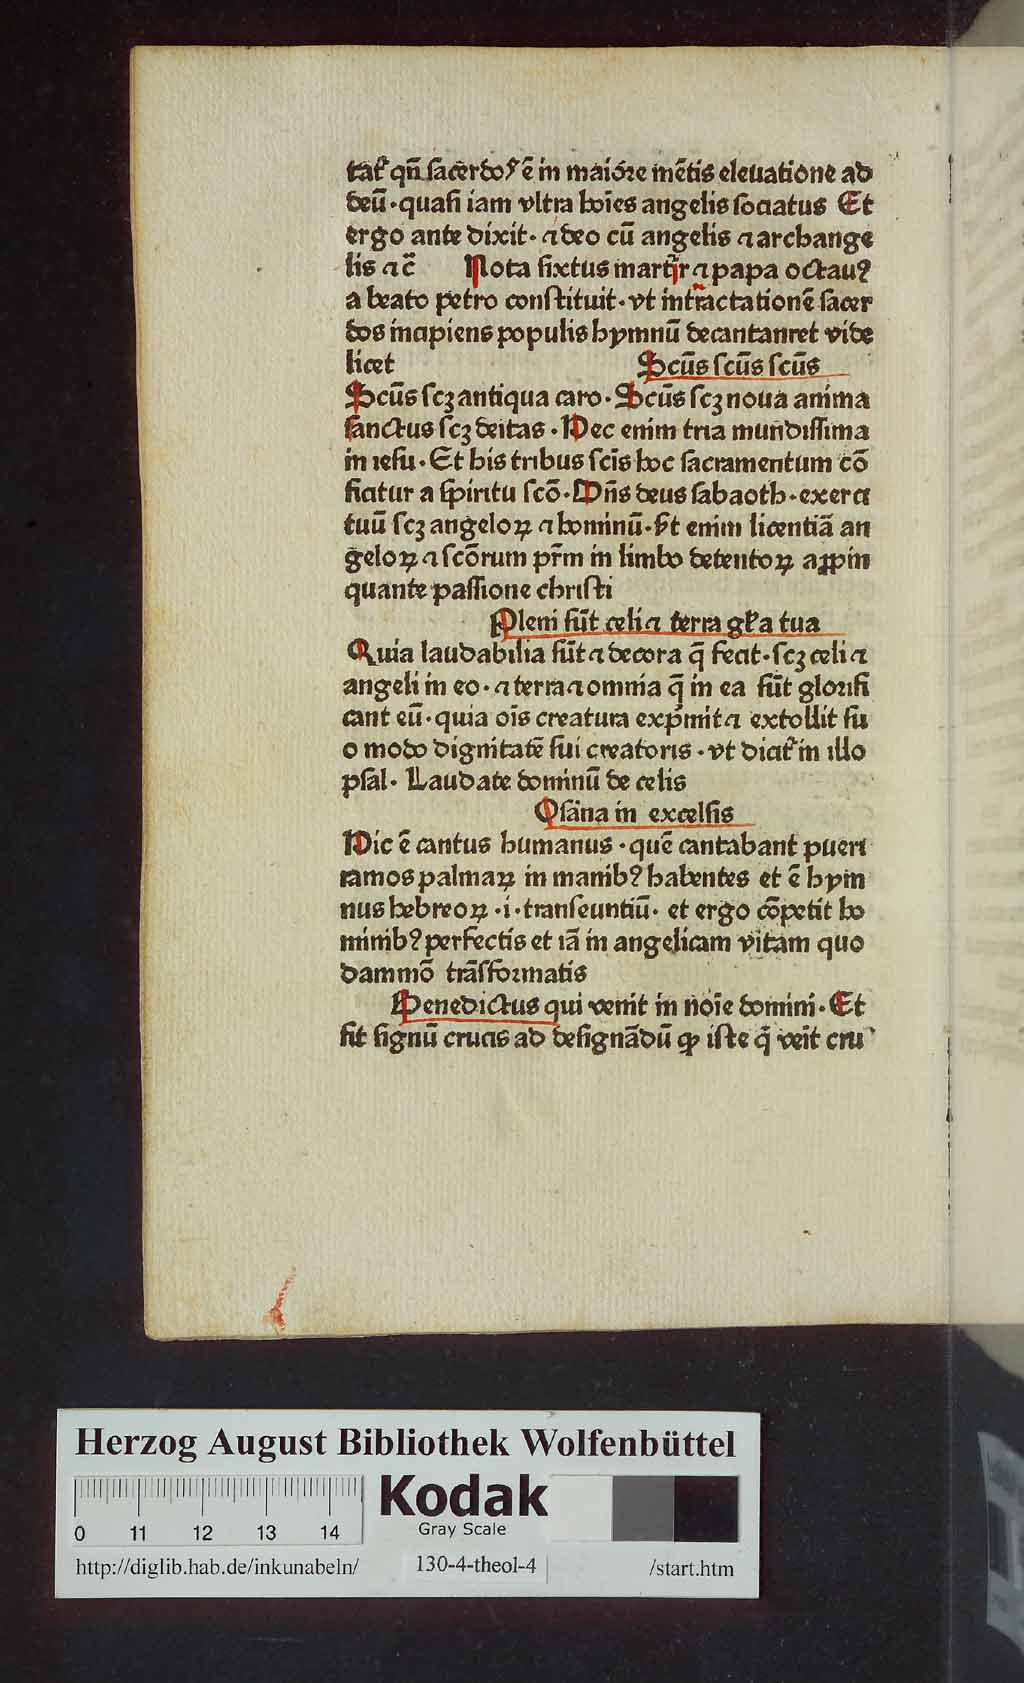 tat᷑ qn̄ sacerdoꝰ ē in maiore mētis eleuatione ad
deū · quasi iam vltra hoīes angelis sociatus Et
ergo ante dixit · ⁊ deo cū angelis ⁊ archange
lis ⁊ c̄ Nota sixtus martir ⁊ papa octauꝰ
a beato petro constituit · vt intractationē sacer
dos incipiens populis hymnū decantanret vide
licet Scūs scūs scūs
Scūs scꝫ antiqua caro · Scūs scꝫ noua anima
sanctus scꝫ deitas · Hec enim tria mundissima
in iesu · Et his tribus scīs hoc sacramentum cō
ficitur a spiritu scō · Dn̄s deus sabaoth · exerci
tuū scꝫ angeloꝝ ⁊ hominū · vt enim licentiā an
geloꝝ ⁊ scōrum pr̄m in limbo detentoꝝ aꝓpin
quante passione christi
Pleni sūt celi ⁊ terra gl᷑a tua
Quia laudabilia sūt ⁊ decora q̄ fecit · scꝫ celi ⁊
angeli in eo · ⁊ terra ⁊ omnia q̄ in ea sūt glorifi
cant eū · quia oīs creatura exp̄mit ⁊ extollit su
o modo dignitatē sui creatoris · vt dicit᷑ in illo
psal · Laudate dominū de celis
Osāna in excelsis
Hic ē cantus humanus · quē cantabant pueri
ramos palmaꝝ in manibꝰ habentes et ē hym
nus hebreoꝝ · i · transeuntiū · et ergo cōpetit ho
minibꝰ perfectis et iā in angelicam vitam quo
dammō trāsformatis
Benedictus qui venit in noīe domini · Et
fit signū crucis ad designādū ꝙ iste q̄ veīt cru
Herzog August Bibliothek Wolfenbüttel
0 11 12 13 14
Kodak
Gray Scale
http://diglib.hab.de/inkunabeln/ 130-4-theol-4 /start.htm